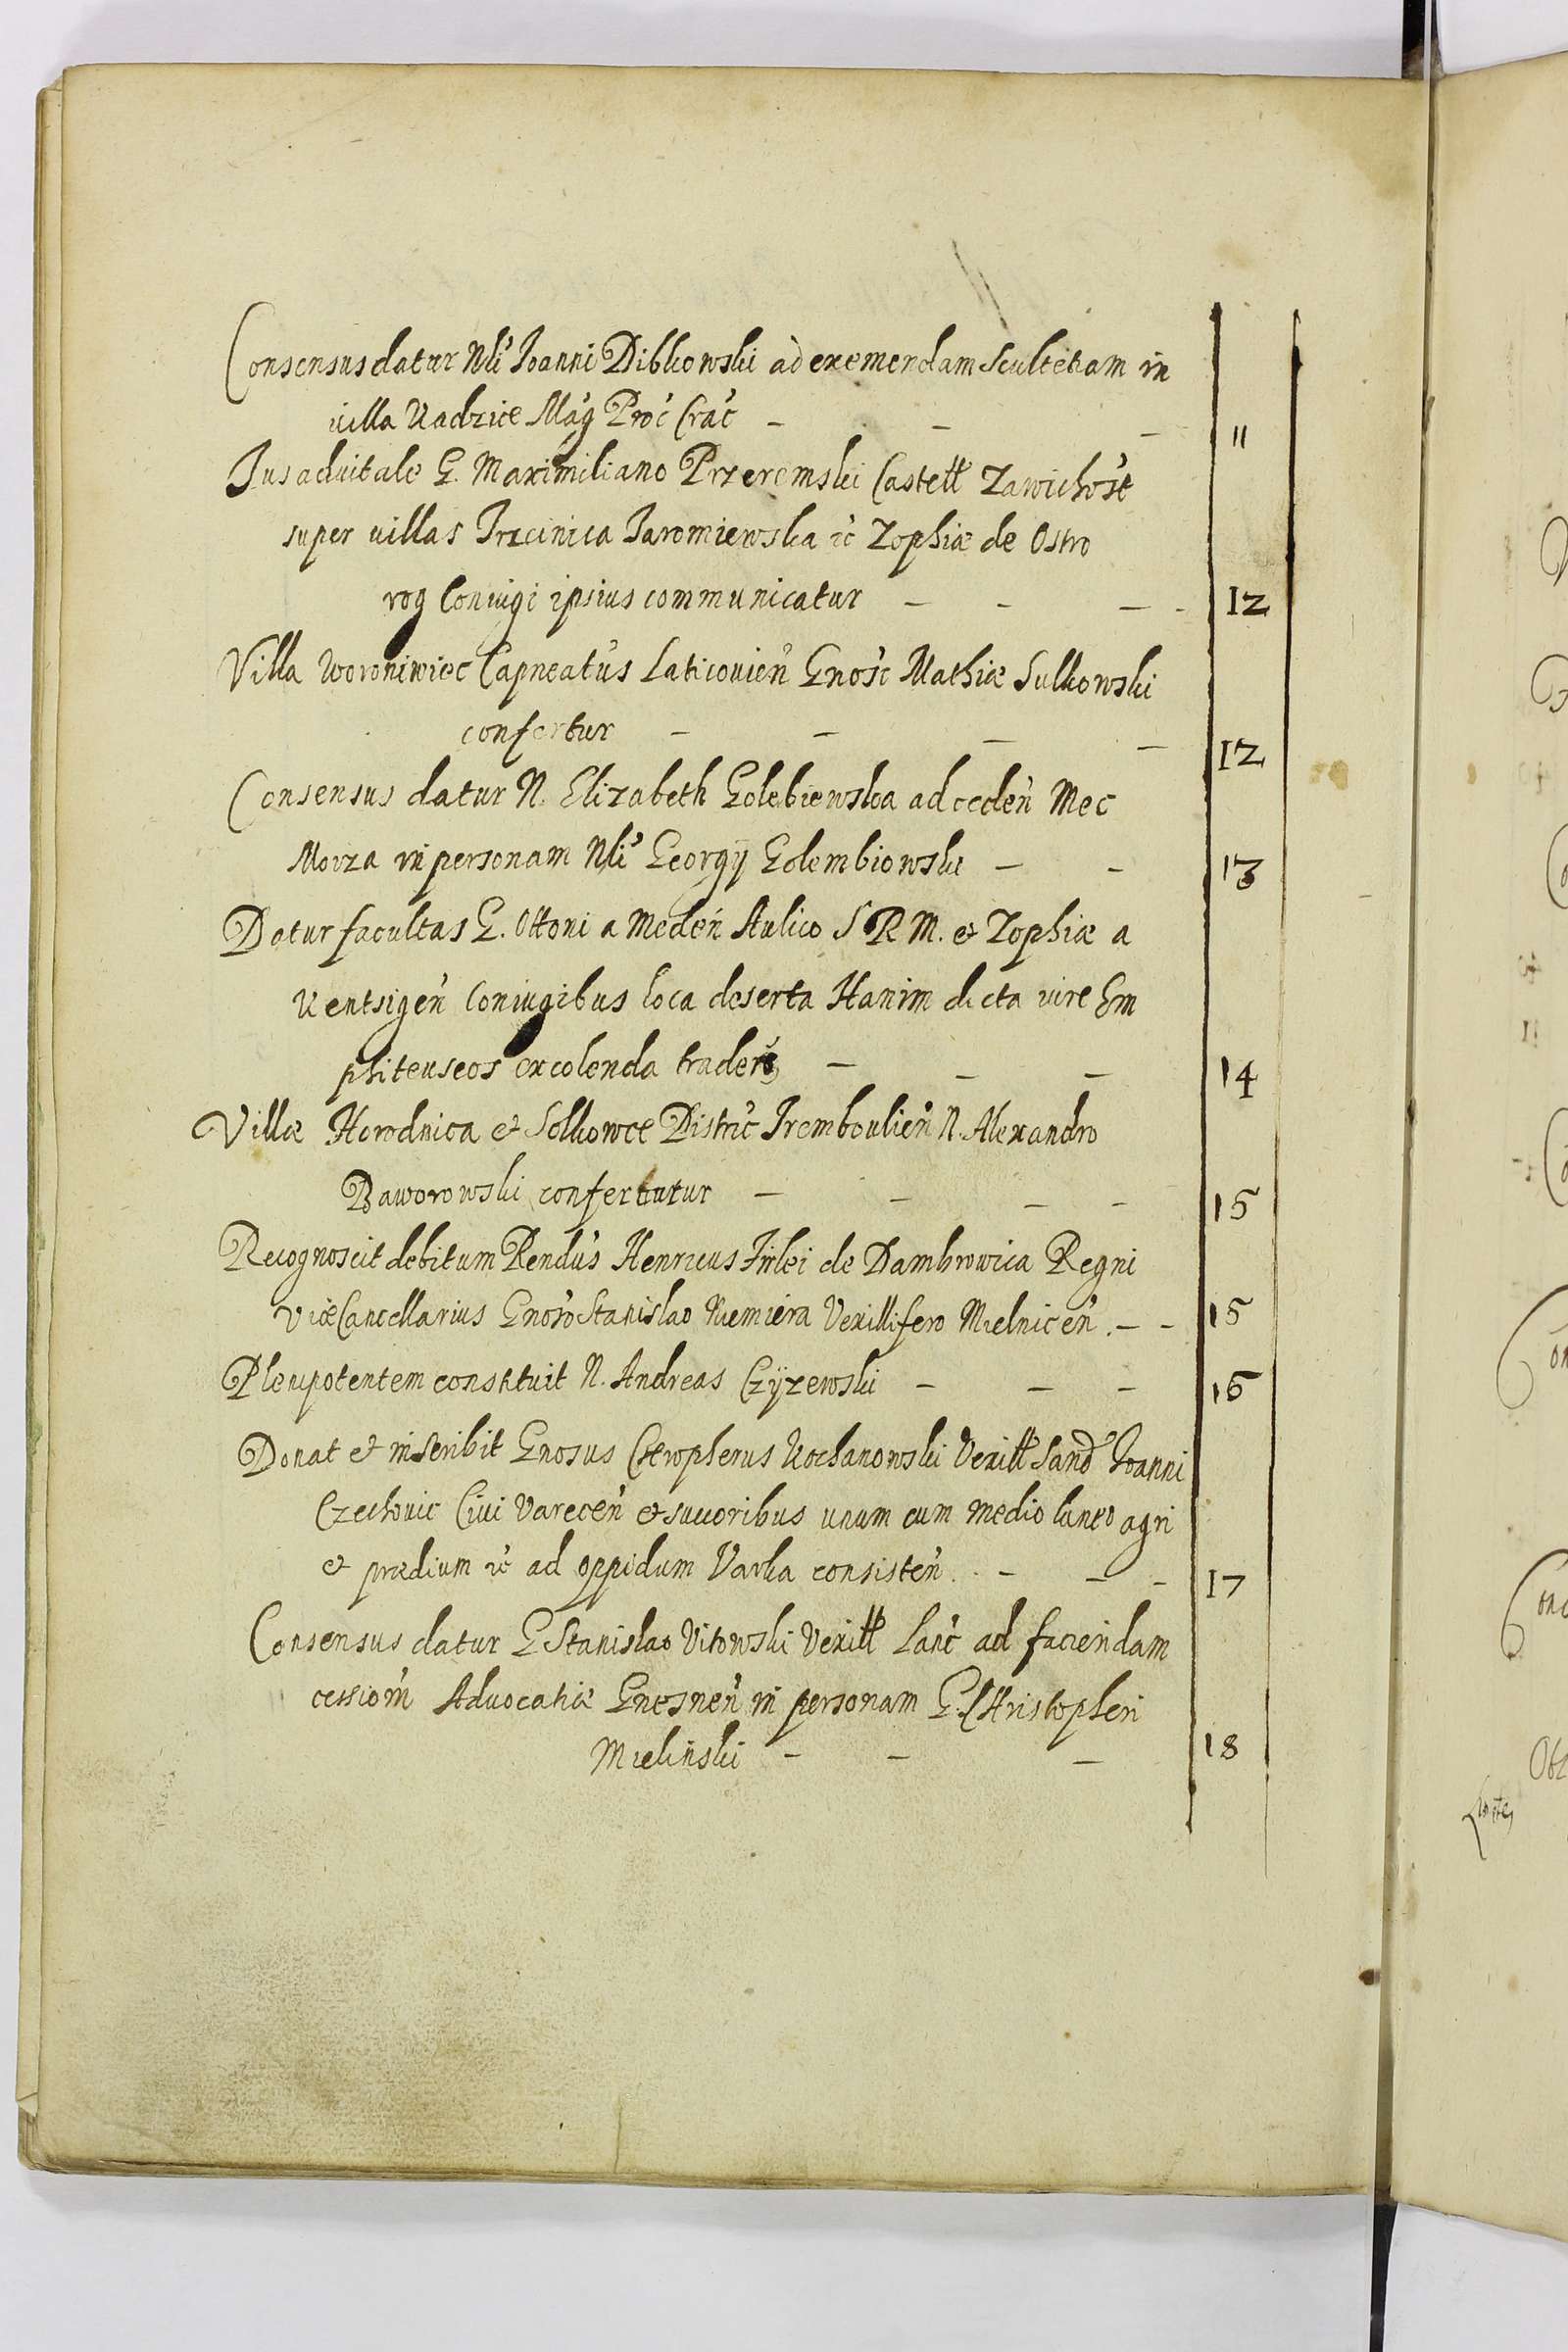 Consensus datur Nli Joanni Dibkowski ad exemendam Scultetiam in
villa Kadzice Mag Proc Crac - - - 11
Jus advitale G. Maximiliano Przeremski Castell Zawichost
super villas Trzcinica Jaromiewska rc Zophiæ de Ostro
rog Coniugi ipsius communicatur - - - - 12
Villa Woroniwiec Capneatus Laticovien Gnoso Mathiæ Sulkowski
confertur - - - - 12
Consensus datur N. Elizabeth Golebiewska ad ceden Mec
Morza in personam Nli Georgij Golembiowski - - 13
Datur facultas G. Ottoni a Meden Aulico S R M. et Zophiæ a
Kentsigen Coniugibus loca deserta Hanim dicta iure Em
phiteuseos excolenda tradere - - - 14
Villæ Horodnica et Solkowce Distric Tremboulien N. Alexandro
Baworowski conferuntur - - - - 15
Recognoscit debitum Rendus Henricus Firlei de Dambrowica Regni
ViceCancellarius Gnoso Stanislao Niemiera Vexillifero Mielnicen. - - 15
Plenipotentem constituit N. Andreas Czÿzewski - - - 16
Donat et inscribit Gnosus Cristopherus Kochanowski Vexill Sand Joanni
Czechovic Civi Varecen et succoribus unum cum medio laneo agri
et prædium rc ad oppidum Varka consisten. - - - 17
Consensus datur G Stanislao Vitowski Vexill Lanc ad faciendam
cessiom Advocatiæ Gnesnen in personam G. CHristopheri
Mielinski - - - 18